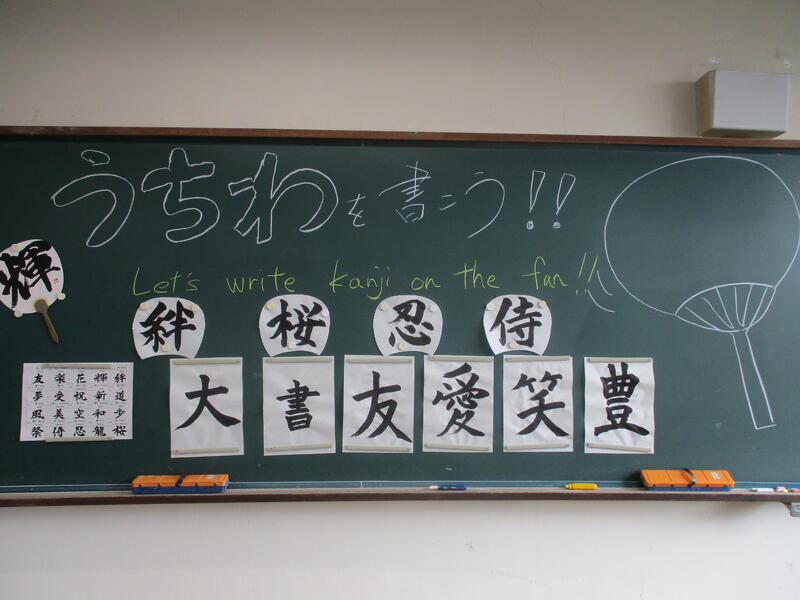 うちわを書こう!!
Let's write kanji on the fan!!
輝
絆 桜 忍 侍
大 書 友 愛 笑 豊
友 楽 花 輝 絆
夢 愛 祝 新 道
風 美 空 和 歩
祭 侍 忍 龍 桜